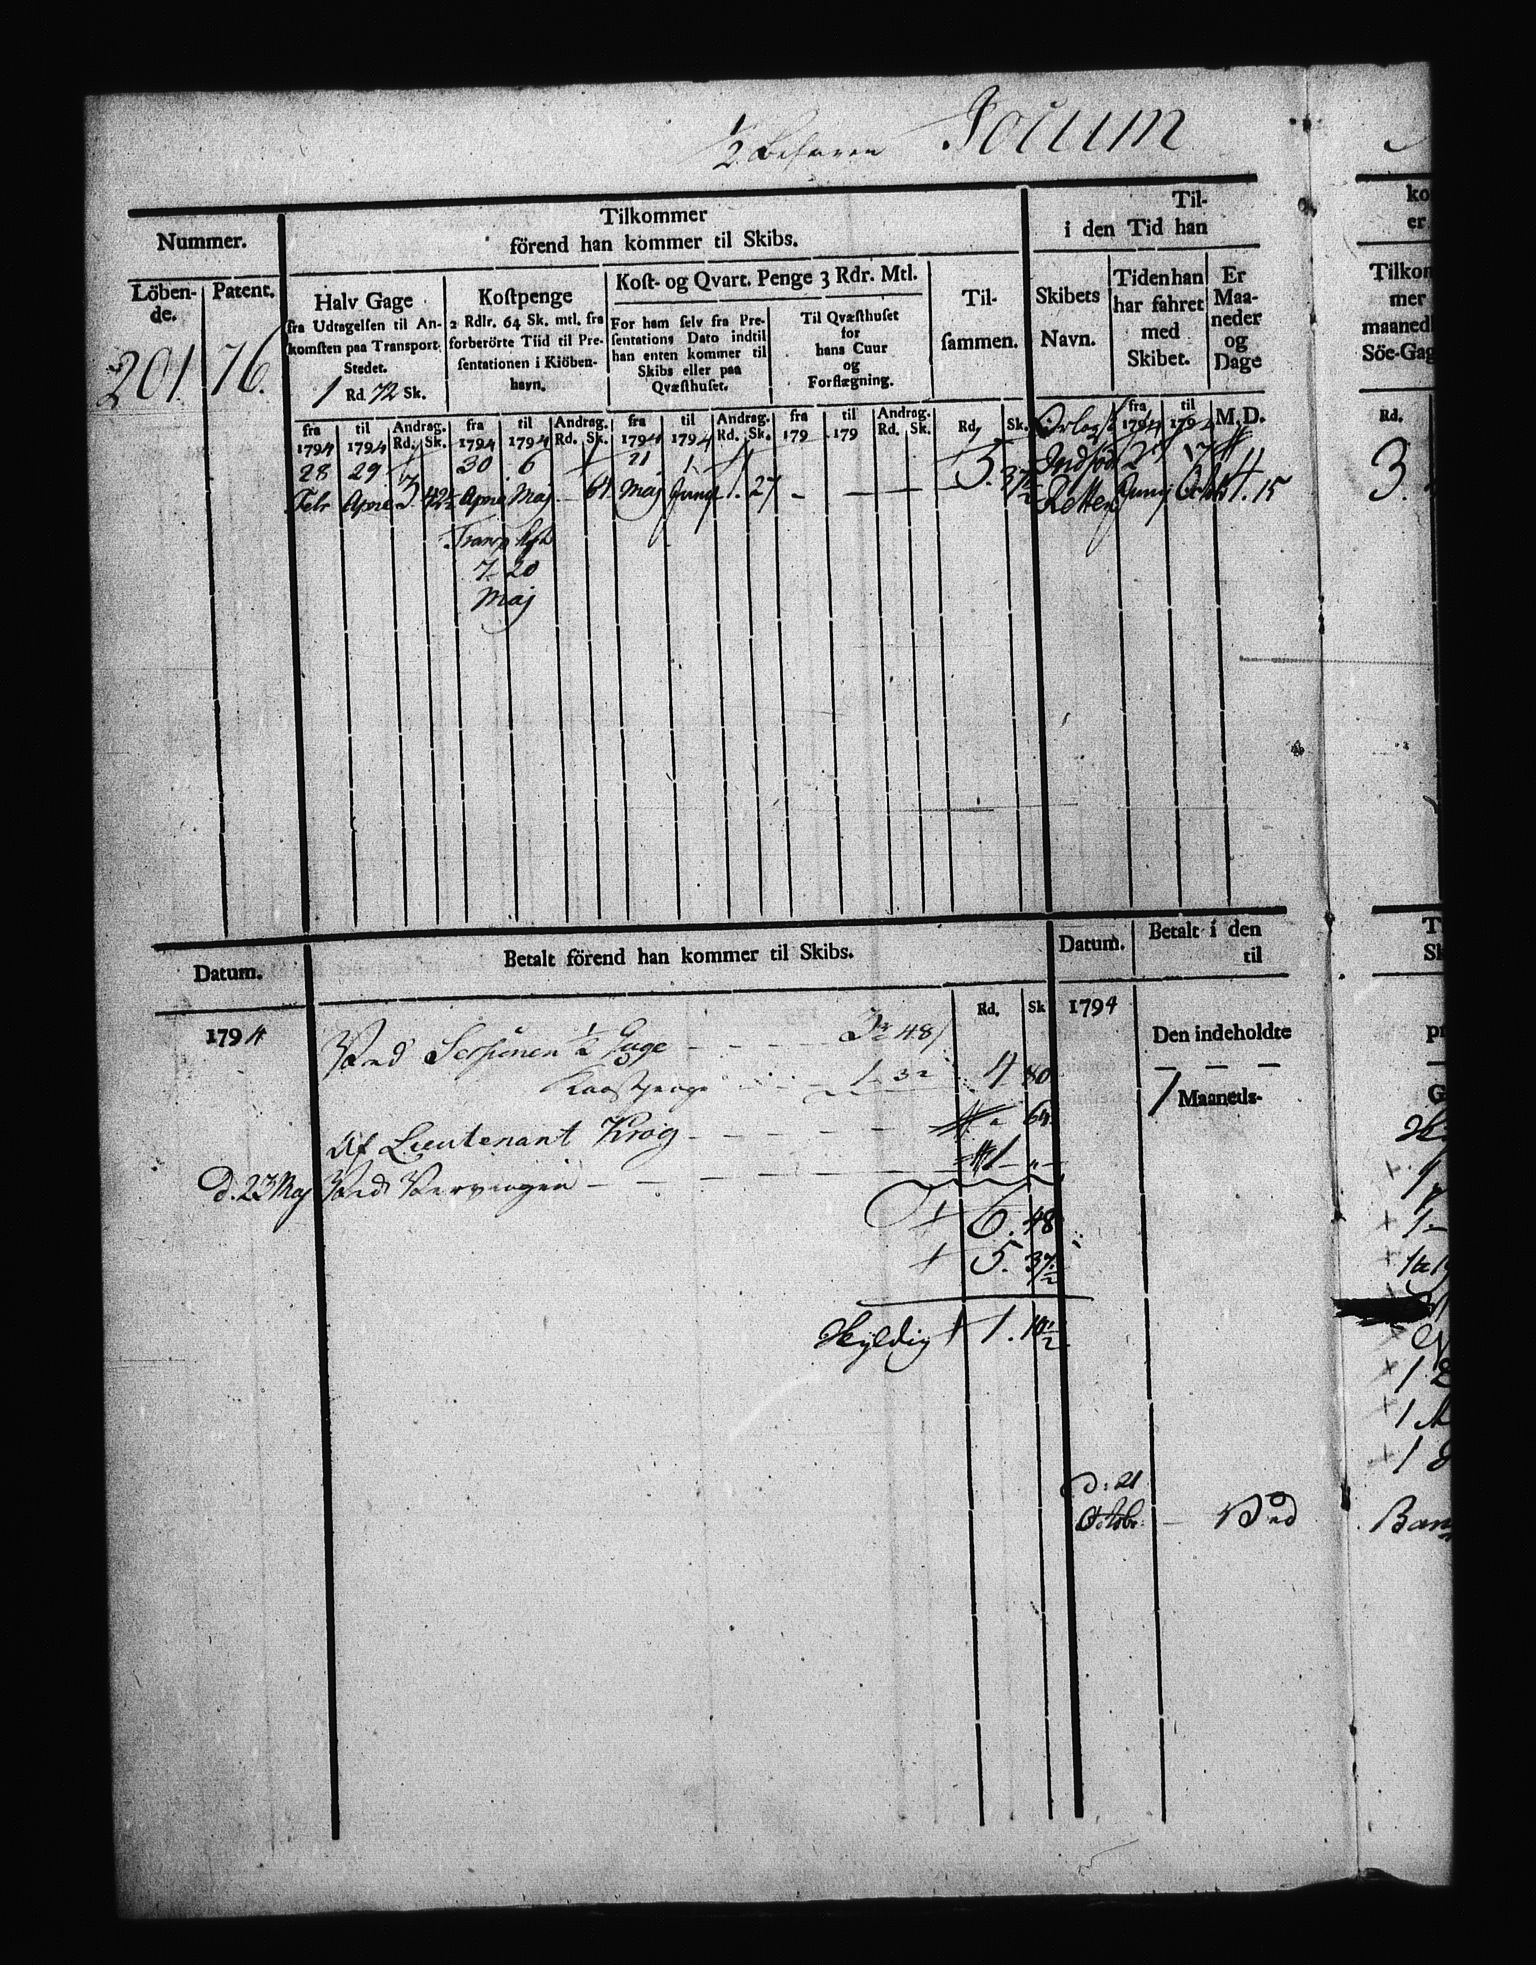 1/2 Befaren Jocum
Nummer.
Tilkommer
förend han kommer til Skibs.
Til-
i den Tid han
Löben-
de.
Patent.
201. 76.
Halv Gage
fra Udtagelsen til An-
komsten paa Transport
Stedet.
1 Rd. 72 Sk.
Kostpenge
2 Rdlr. 64 Sk. mtl. fra
forberörte Tiid til Pre-
sentationen i Kiöben-
havn.
Kost- og Qvart. Penge 3 Rdr. Mtl.
For ham selv fra Pre-
sentations Dato indtil
han enten kommer til
Skibs eller paa
Qvæsthuset.
Til Qvæsthuset
for
hans Cuur
og
Forflægning.
Til-
sammen.
Skibets
Navn.
Tiden han
har fahret
med
Skibet.
Er
Maa-
neder
og
Dage
fra 1794 til 1794 Andrag. Rd. Sk.
fra 1794 til 1794 Andrag. Rd. Sk.
fra 1794 til 1794 Andrag. Rd. Sk.
fra 179 til 179 Andrag. Rd. Sk.
Rd. Sk.
fra 1794 til 1794 M. D.
28 29 30 6 21 1
Febr Apr 3. 42 1/2 Apr Maj - 64 Maj Juny 1. 27 - - - 5. 37 1/2
Orlogs
Indföds
Retten 2 Juny 17 Octbr 4. 15
Transp
7 - 20
Maj
Datum.
Betalt förend han kommer til Skibs.
Datum.
Betalt i den
til
1794
Rd. Sk
1794
Ved Sessionen 1/2 Gage - - - 3 48
Kaastpenge - - 1. 32 4 80
Af Lieutenant Krog - - - - " 64
d. 23 Maj Ved - - - - 1 "
6. 48
5. 37 1/2
Skyldig 1. 10 1/2
Den indeholdte
1 Maaneds-
d: 21
Octobr: - Ved
ko
er
Tilkom
mer
maaned
Söe-Gag
Rd.
3.